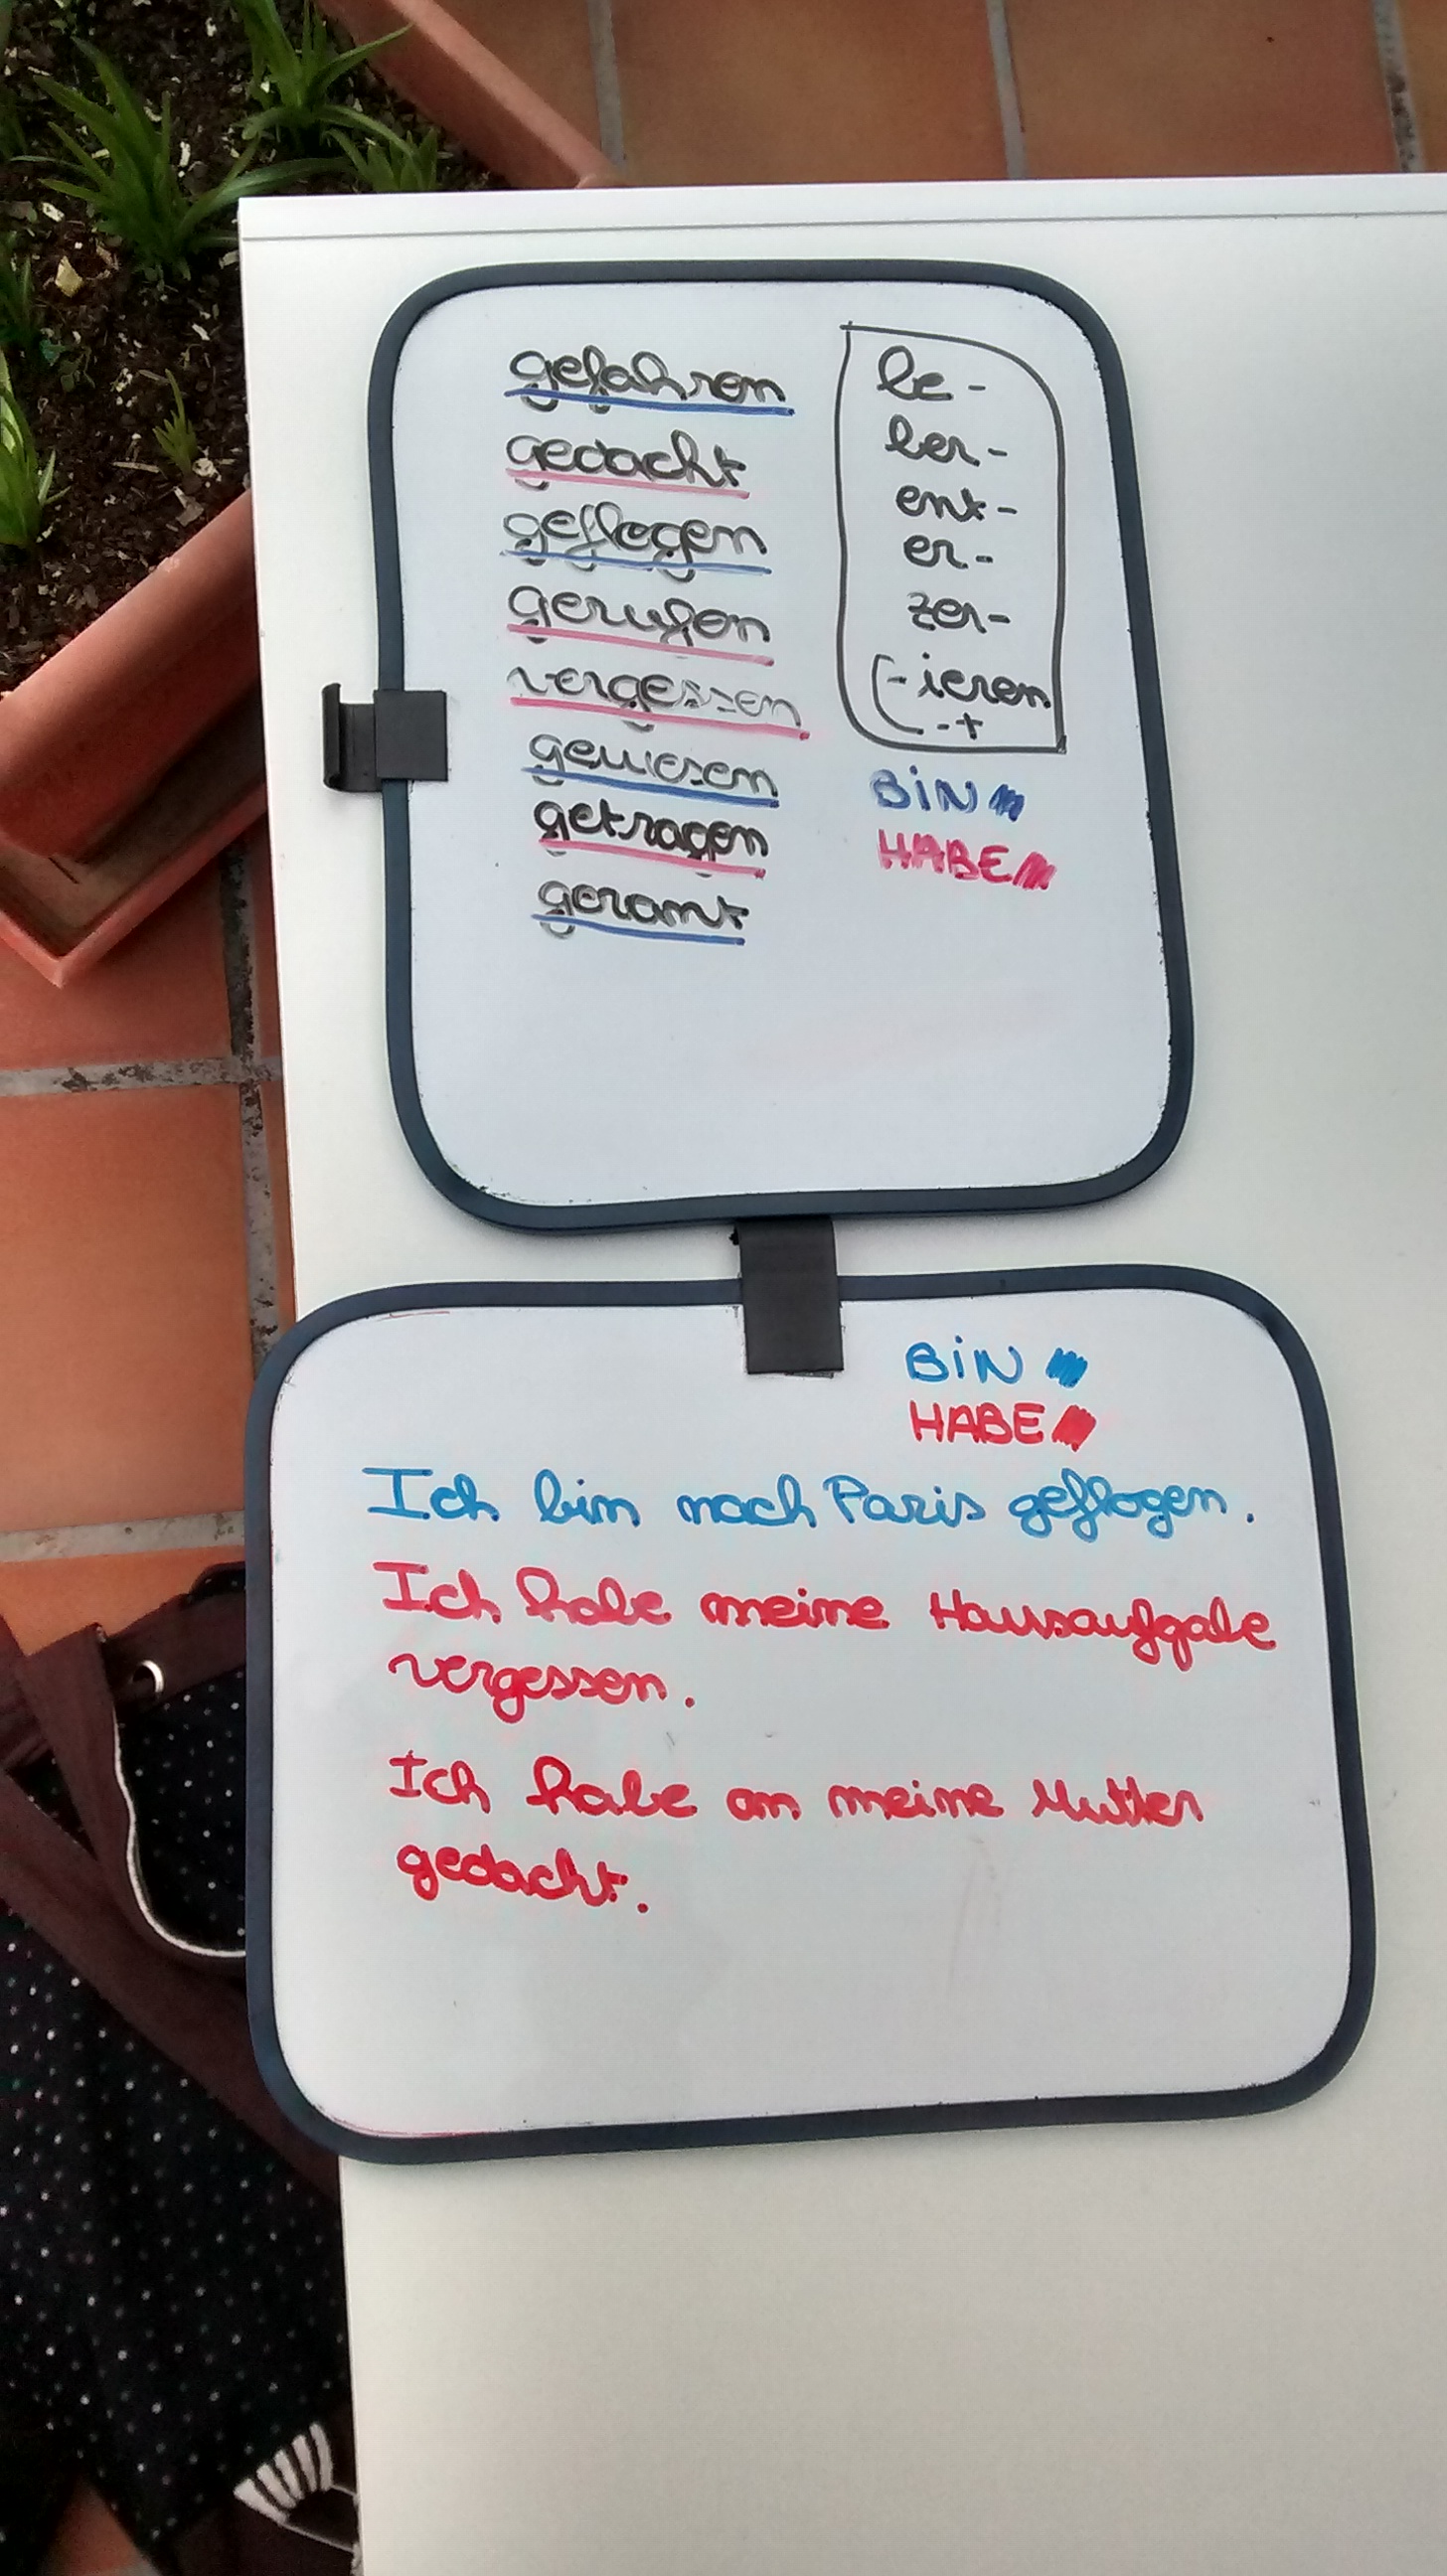 gefahren
gedacht
geflogen
gerufen
vergessen
gewesen
getragen
gerannt
be-
ver-
ent-
er-
zer-
(-ieren
-t
BiN
HABE
BiN
HABE
Ich bin nach Paris geflogen.
Ich habe meine Hausaufgabe
vergessen.
Ich habe an meine Mutter
gedacht.